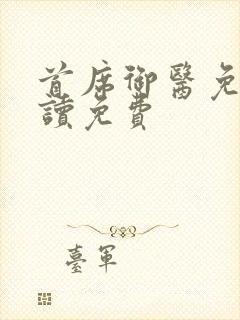 首席御醫免
讀免費
臺軍